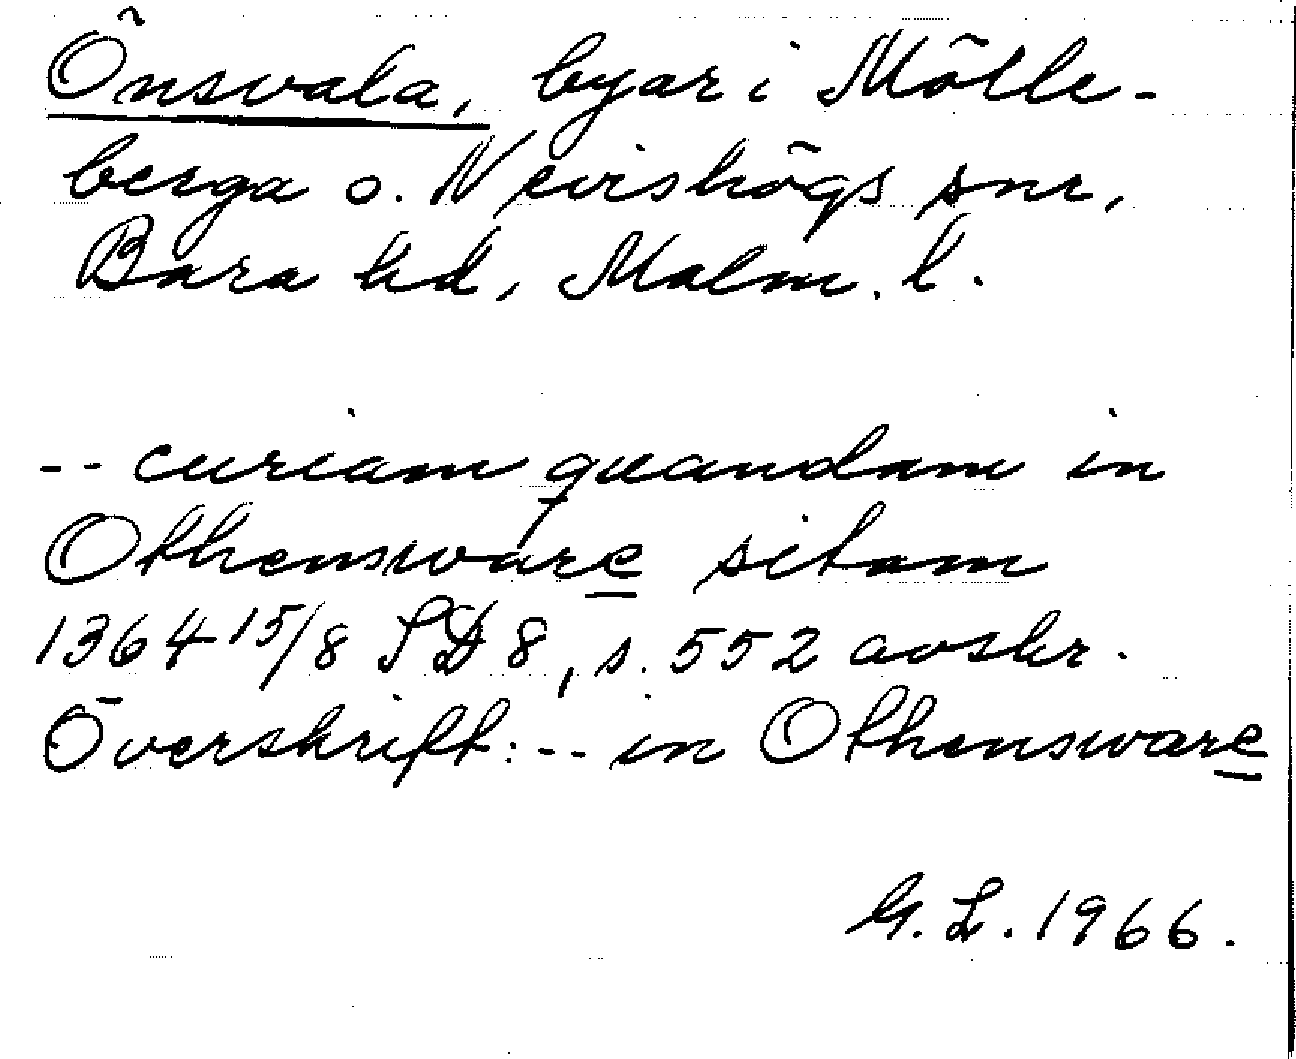 Önsvala, byar i Mölle-
berga o. Nevishögs snr,
Bara hd, Malm. l.
-- curiam quandam in
Othensware sitam
1364 15/8 SD 8, s. 552 avskr.
Överskrift: -- in Othensware
G. L. 1966.